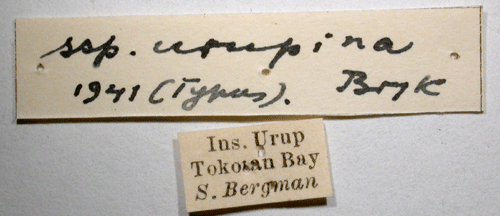 ssp. urupina
1941 (Typus). Bryk
Ins. Urup
Tokotan Bay
S. Bergman